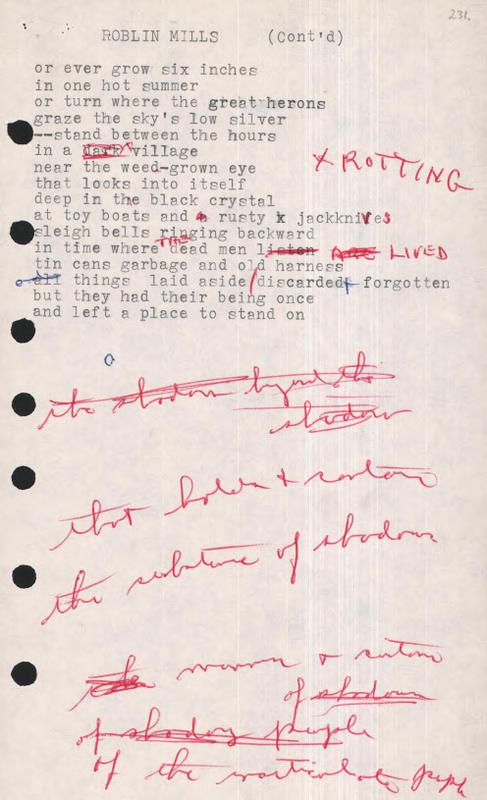 231.
ROBLIN MILLS (Cont'd)
or ever grow six inches
in one hot summer
or turn where the great herons
graze the sky's low silver
--stand between the hours
in a dark village
X ROTTING
near the weed-grown eye
that looks into itself
deep in the black crystal
at toy boats and a rusty x jackknives
sleigh bells ringing backward
in time where THE dead men listen ARE LIVED
tin cans garbage and old harness
all things laid aside/discarded+ forgotten
but they had their being once
and left a place to stand on
the shadow beyond the
shadow
that holds +
the substance of shadows
the +
of shadows
of shadowy people
of the particulate